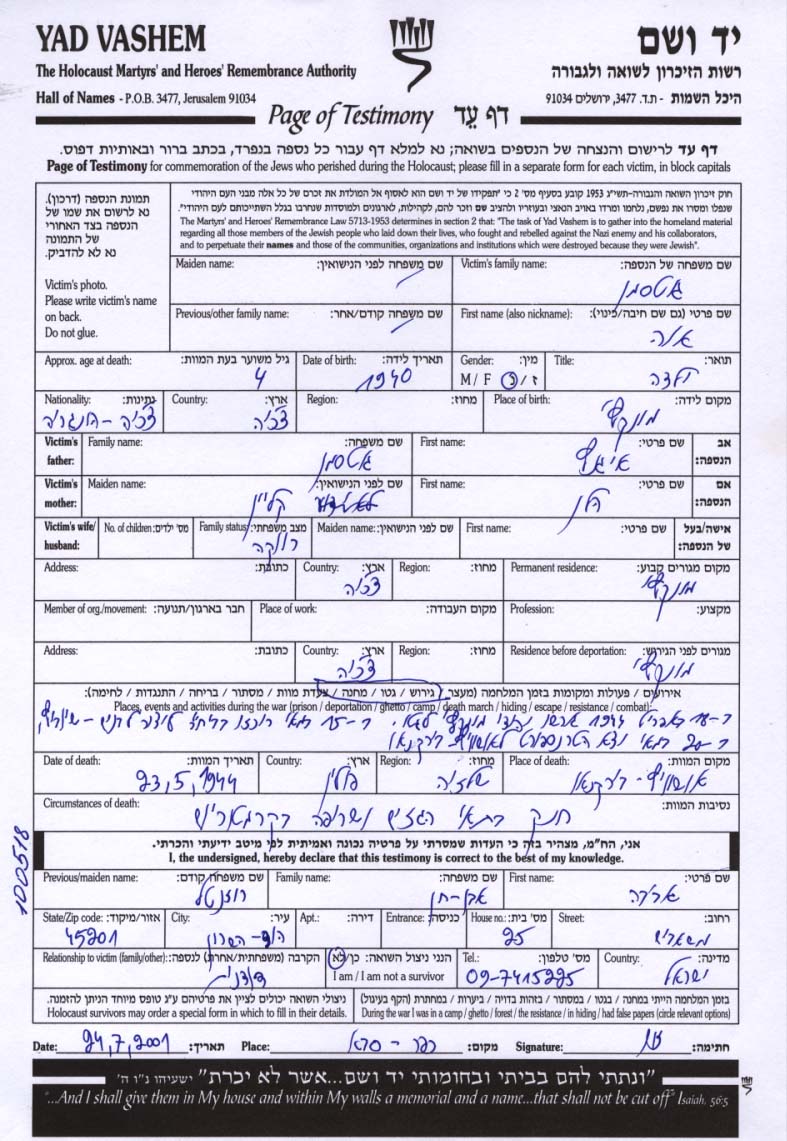 YAD VASHEM
יד ושם
The Holocaust Martyrs' and Heroes' Remembrance Authority
רשות הזיכרון לשואה ולגבורה
Hall of Names - P.O.B. 3477, Jerusalem 91034
היכל השמות - ת.ד. 3477, ירושלים 91034
Page of Testimony דף עֵד
דף עד לרישום והנצחה של הנספים בשואה; נא למלא דף עבור כל נספה בנפרד, בכתב ברור ובאותיות דפוס.
Page of Testimony for commemoration of the Jews who perished during the Holocaust; please fill in a separate form for each victim, in block capitals
תמונת הנספה (דרכון).
נא לרשום את שמו של
הנספה בצד האחורי
של התמונה
נא לא להדביק.
Victim's photo.
Please write victim's name
on back.
Do not glue.
חוק זיכרון השואה והגבורה-תשי"ג 1953 קובע בסעיף מס' 2 כי "תפקידו של יד ושם הוא לאסוף אל המולדת את זכרם של כל אלה מבני העם היהודי
שנפלו ומסרו את נפשם, נלחמו ומרדו באויב הנאצי ובעוזריו ולהציב שם וזכר להם, לקהילות, לארגונים ולמוסדות שנחרבו בגלל השתייכותם לעם היהודי".
The Martyrs' and Heroes' Remembrance Law 5713-1953 determines in section 2 that: "The task of Yad Vashem is to gather into the homeland material
regarding all those members of the Jewish people who laid down their lives, who fought and rebelled against the Nazi enemy and his collaborators,
and to perpetuate their names and those of the communities, organizations and institutions which were destroyed because they were Jewish".
Maiden name: שם משפחה לפני הנישואין:
Victim's family name: שם משפחה של הנספה:
גוטסמן
Previous/other family name: שם משפחה קודם/אחר:
First name (also nickname): שם פרטי (גם שם חיבה/כינוי):
Approx. age at death: גיל משוער בעת המוות:
4
Date of birth: תאריך לידה:
1940
Gender: מין:
M / F ז / נ
Title: תואר:
ילדה
Nationality: נתינות:
צ'כיה - הונגריה
Country: ארץ:
צ'כיה
Region: מחוז:
Place of birth: מקום לידה:
מונקץ'
Victim's father: אב הנספה:
Family name: שם משפחה:
גוטסמן
First name: שם פרטי:
Victim's mother: אם הנספה:
Maiden name: שם לפני הנישואין:
קליין
First name: שם פרטי:
הלן
Victim's wife/husband: אישה/בעל של הנספה:
No. of children: מס' ילדים:
Family status: מצב משפחתי:
רווקה
Maiden name: שם לפני הנישואין:
First name: שם פרטי:
Address: כתובת:
Country: ארץ:
צ'כיה
Region: מחוז:
Permanent residence: מקום מגורים קבוע:
מונקץ'
Member of org./movement: חבר בארגון/תנועה:
Place of work: מקום העבודה:
Profession: מקצוע:
Address: כתובת:
Country: ארץ:
צ'כיה
Region: מחוז:
Residence before deportation: מגורים לפני הגירוש:
מונקץ'
אירועים / פעולות ומקומות בזמן המלחמה (מעצר / גירוש / גטו / מחנה / צעדת מוות / מסתור / בריחה / התנגדות / לחימה):
Places, events and activities during the war (prison / deportation / ghetto / camp / death march / hiding / escape / resistance / combat):
ב-18 באפריל 1944
ב-15 במאי רוכזו
ב-20 במאי יצא הטרנספורט לאושויץ בירקנאו
Date of death: תאריך המוות:
23,5,1944
Country: ארץ:
פולין
Region: מחוז:
שלזיה
Place of death: מקום המוות:
אושויץ - בירקנאו
Circumstances of death: נסיבות המוות:
חנק בתאי הגזים ושרופה בקרמטוריום
אני, הח"מ, מצהיר בזה כי העדות שמסרתי על פרטיה נכונה ואמיתית לפי מיטב ידיעתי והכרתי.
I, the undersigned, hereby declare that this testimony is correct to the best of my knowledge.
100518
Previous/maiden name: שם משפחה קודם:
רוזנטל
Family name: שם משפחה:
First name: שם פרטי:
State/Zip code: אזור/מיקוד:
45201
City: עיר:
הוד-השרון
Apt.: דירה:
Entrance: כניסה:
House no.: מס' בית:
25
Street: רחוב:
Relationship to victim (family/other): הקרבה (משפחתית/אחרת) לנספה:
הנני ניצול השואה: כן/לא
I am / I am not a survivor
Tel.: מס' טלפון:
09-7415225
Country: מדינה:
ישראל
ניצולי השואה יכולים לציין את פרטיהם ע"ג טופס מיוחד הניתן להזמנה.
Holocaust survivors may order a special form in which to fill in their details.
בזמן המלחמה הייתי במחנה / בגטו / במסתור / בזהות בדויה / ביערות / במחתרת (הקף בעיגול)
During the war I was in a camp / ghetto / forest / the resistance / in hiding / had false papers (circle relevant options)
Date: 24,7,2001 תאריך:
Place: כפר - סבא מקום:
Signature: חתימה:
"ונתתי להם בביתי ובחומותי יד ושם...אשר לא יכרת" ישעיהו נ"ו ה'
"...And I shall give them in My house and within My walls a memorial and a name...that shall not be cut off" Isaiah, 56:5